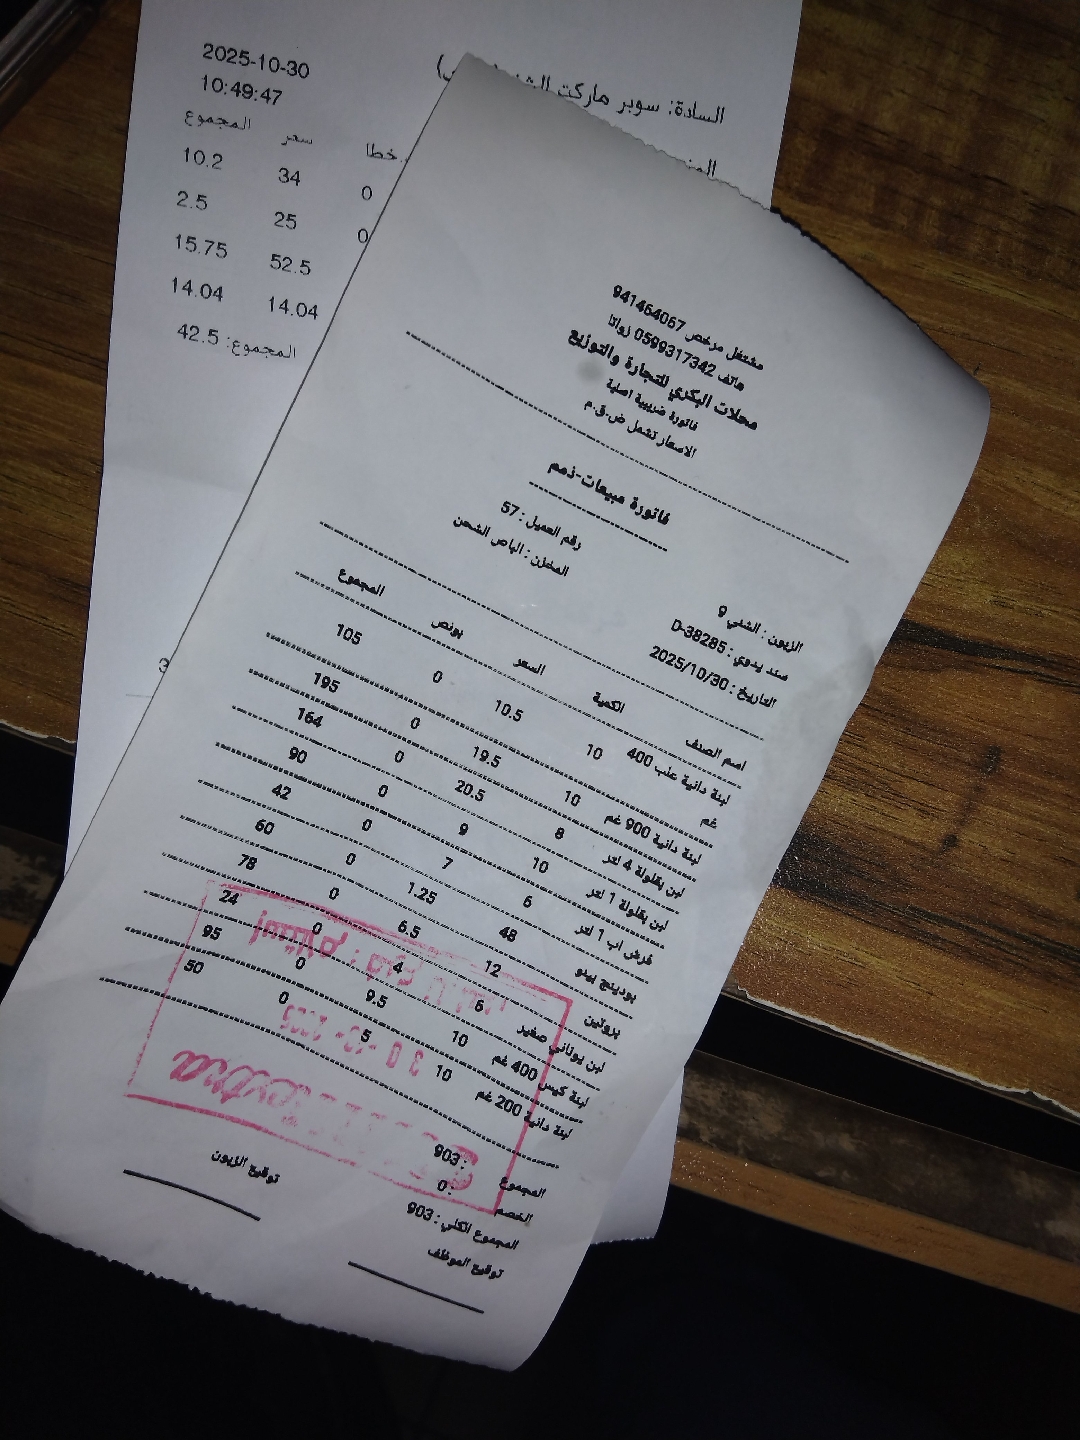 2025-10-30
السادة: سوبر ماركت
10:49:47
خطا سعر المجموع
0 34 10.2
0 25 2.5
52.5 15.75
14.04 14.04
المجموع: 42.5
3
مشتغل مرخص 941464067
هاتف 0599317342 زواتا
محلات البكري للتجارة والتوزيع
فاتورة ضريبية اصلية
الاسعار تشمل ض.ق.م
فاتورة مبيعات-ذمم
رقم العميل : 57
المخزن : الباص الشحن
الزبون : الشني 9
سند يدوي : D-38285
التاريخ : 2025/10/30
اسم الصنف الكمية السعر بونص المجموع
لبنة دانية علب 400 غم 10 10.5 0 105
لبنة دانية 900 غم 10 19.5 0 195
لبن بقلولة 4 لتر 8 20.5 0 164
لبن بقلولة 1 لتر 10 9 0 90
فرش اب 1 لتر 6 7 0 42
بودينج بينو 48 1.25 0 60
بروتين 12 6.5 0 78
لبن يوناني صغير 6 4 0 24
لبنة كيس 400 غم 10 9.5 0 95
لبنة دانية 200 غم 10 5 0 50
المجموع : 903
الخصم : 0
المجموع الكلي : 903
توقيع الزبون
توقيع الموظف
استلام :
30 -10- 2025